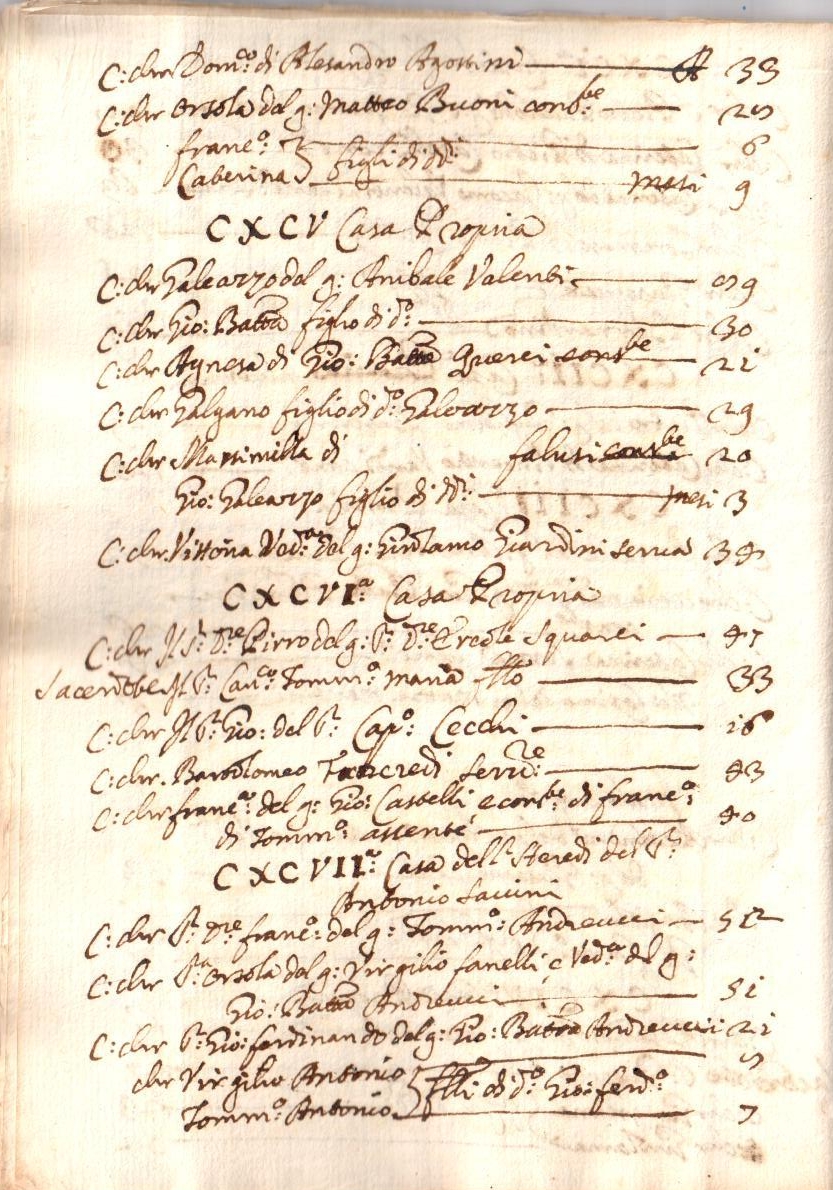 C: chr Dom:co di Alesandro Agostini 33
C: chr Orsola del q: Matteo Buoni cons:be 25
Franc:o 6
Caterina figli di dd:i mesi 9
CXCV Casa Propria
C: chr Galeazzo del q: Anibale Valenti 59
C: chr Gio: Batta figlio di d:o 30
C: chr Agnesa di Gio: Batta Querci cons:be 21
C: chr Galgano figlio di d:o Galeazzo 29
C: chr Marsimilla di Falusi cons:be 20
Gio: Galeazzo figlio di dd:i mesi 3
C: chr. Vittoria Ved:a del q: Girolamo Giardini serva 34
CXCVI:a Casa Propria
C: chr Il S:r D:re Pirro del q: S:r D:re Ercole Squarci 47
Sacerdote Il S:r Can:co Tomm:o Maria fllo 33
C: chr Il S:r Gio: del S:r Cap:o Cecchi 16
C: chr. Bartolomeo Tancredi Serv:re 43
C: chr Franc:a del q: Gio: Castelli e cons:be di Franc:o
di Tomm:o assente 40
CXCVII:a Casa dell' Heredi del S:r
Antonio Saccini
C: chr S:r D:re Franc:o del q: Tomm:o Andreucci 52
C: chr S:ra Orsola del q: Virgilio Fanelli e Ved:a del q:
Gio: Batta Andreucci 51
C: chr S:r Gio: Ferdinando del q: Gio: Batta Andreucci 21
chr Virgilio Antonio flli di d:o Gio: Ferd:o
Tomm:o Antonio 7